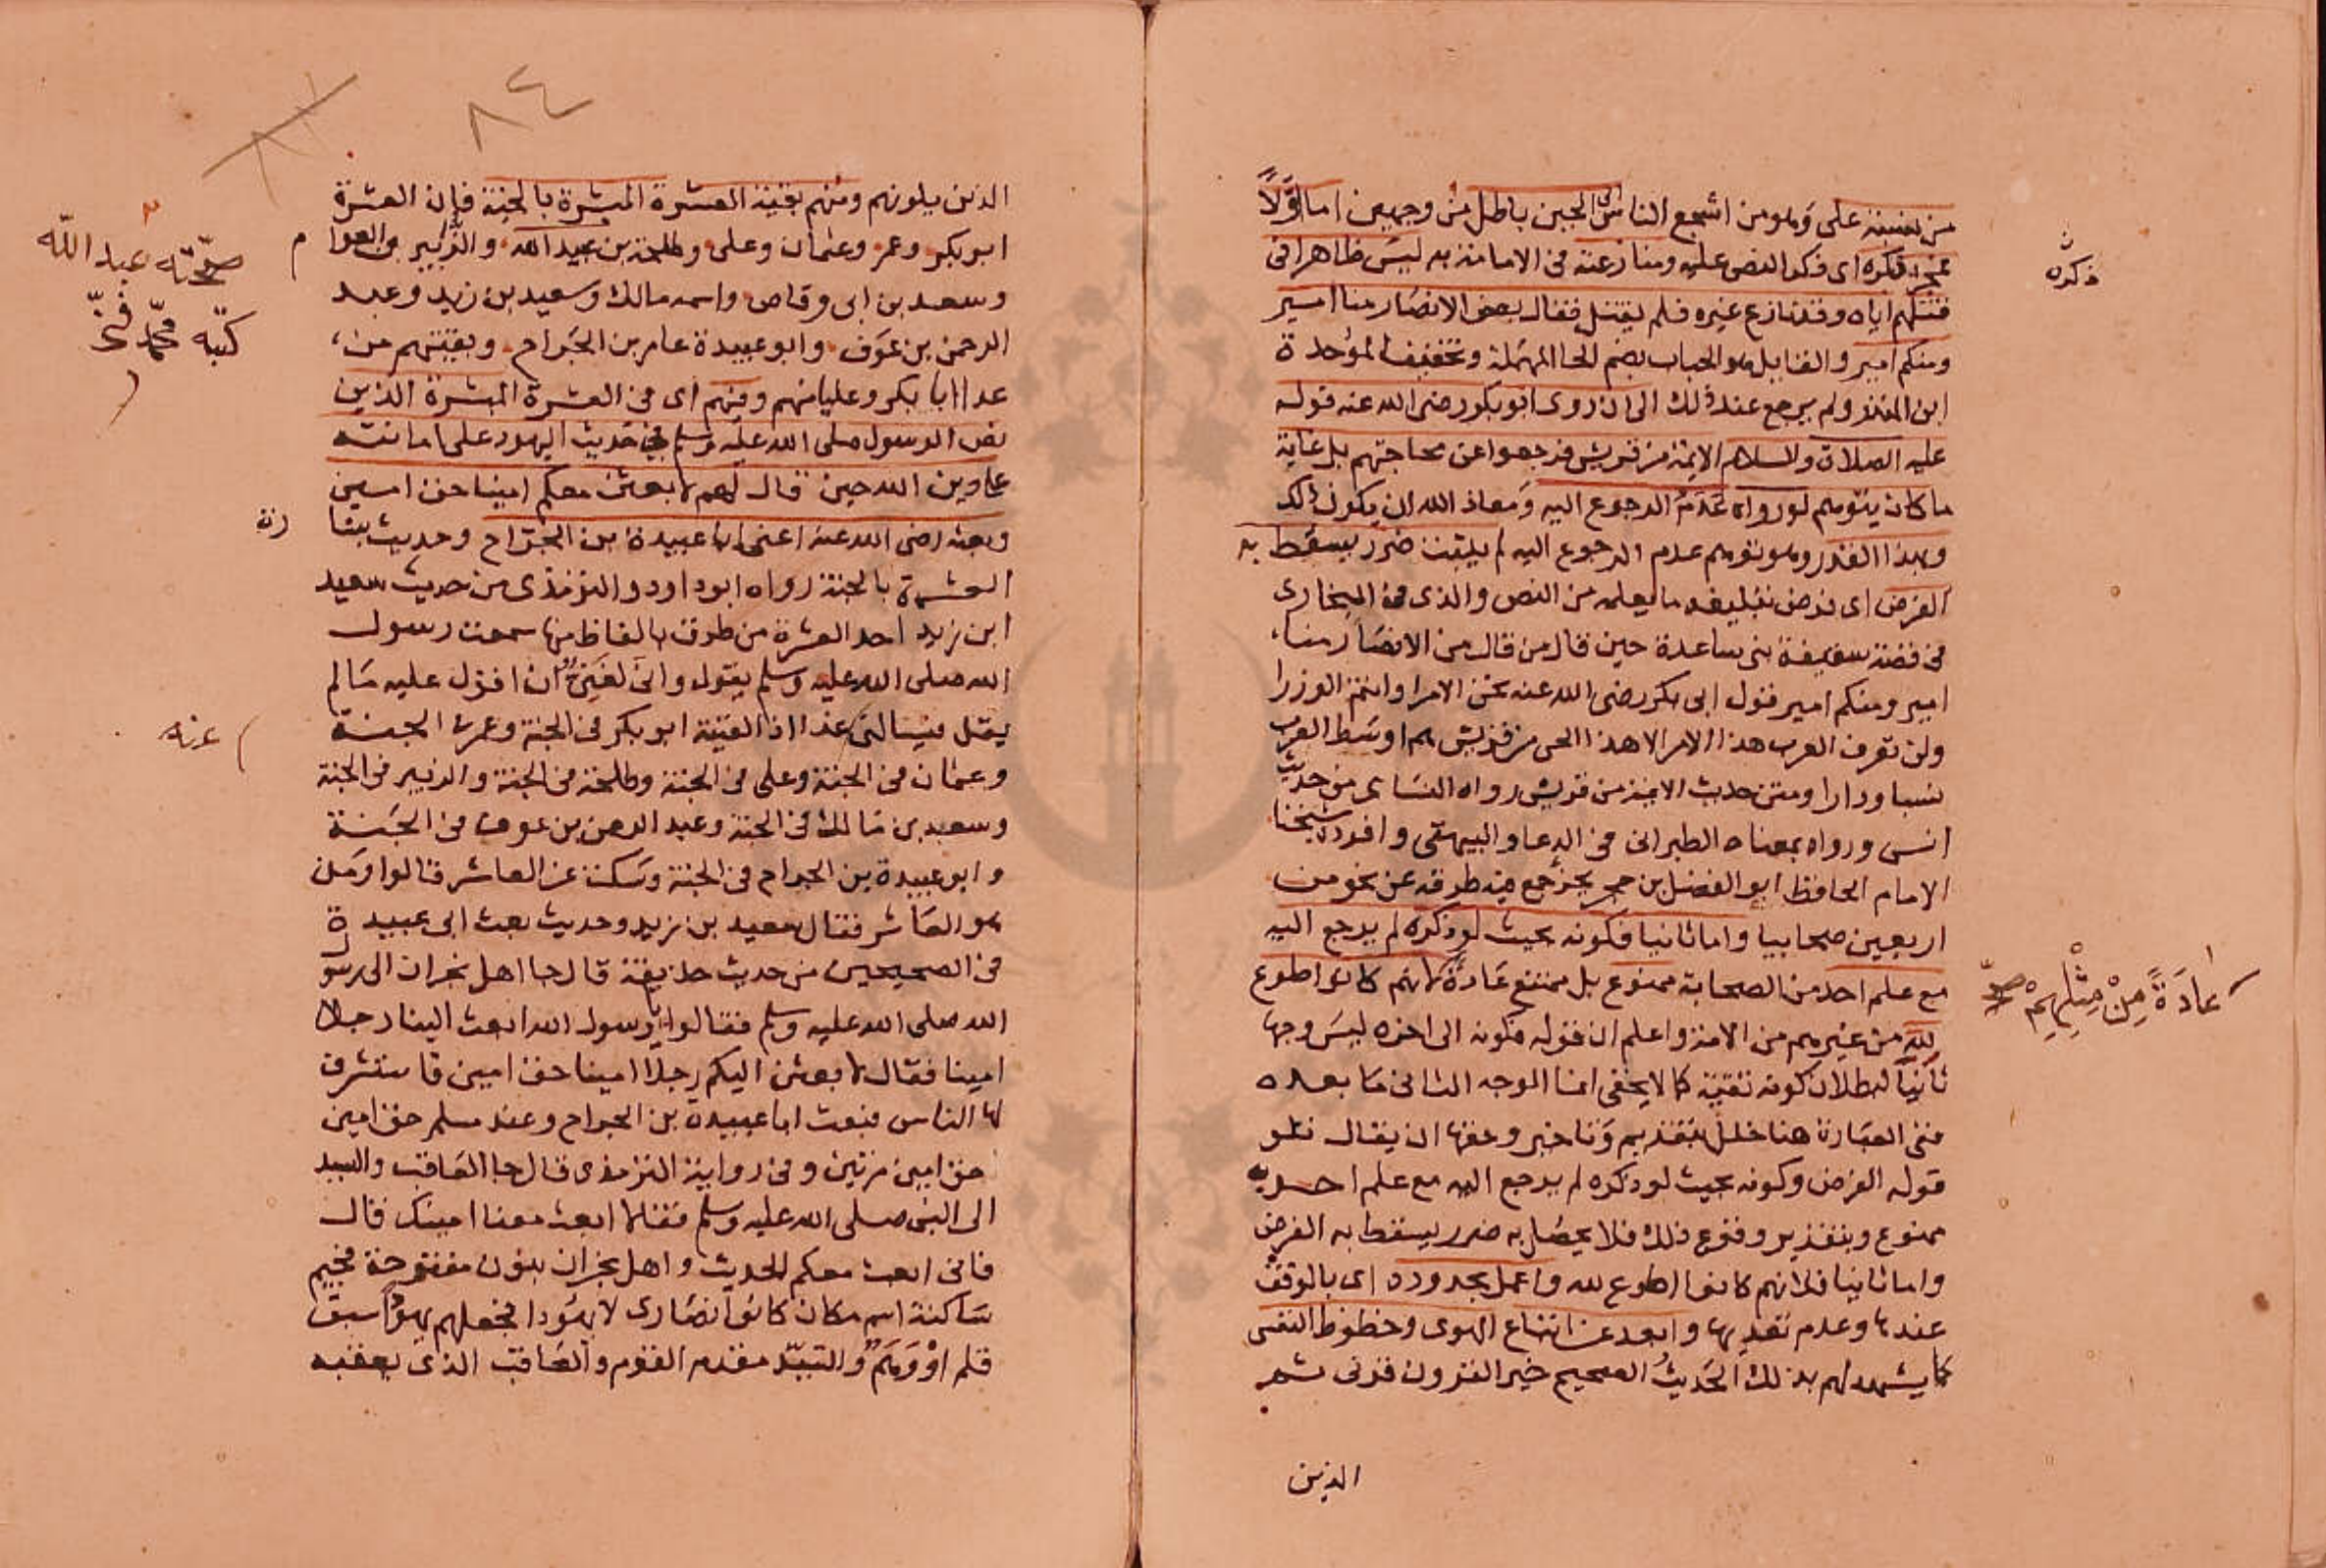 من نسبة على وهو من اشجع الناس الى الجبن باطل من وجهين اما اوّلاً
فمجرد ذكره اى ذكر النص عليه ومنازعته فى الامامة به ليس ظاهرا فى
قتلهم اياه وقد نازع غيره فلم يقتل فقال بعض الانصار منا امير
ومنكم امير والقايل هو الحباب بضم الحا المهملة وتخفيف الموحدة
ابن المنذر ولم يرجع عند ذلك الى ان روى ابو بكر رضى الله عنه قوله
عليه الصلاة والسلام الايمة من قريش فرجعوا عن محاجتهم بل غاية
ما كان يتوهم لو رواه عدم الرجوع اليه ومعاذ الله ان يكون ذلك
وبهذا القدر وهو توهم عدم الرجوع اليه لم يثبت ضرر يسقط به
الفرض اى فرض تبليغه ما يعلمه من النص والذى فى البخارى
فى قصة سقيفة بنى ساعدة حين قال من قال من الانصار منا
امير ومنكم امير قول ابى بكر رضى الله عنه نحن الامرا وانتم الوزرا
ولن تعرف العرب هذا الامر الا هذا الحى من قريش هم اوسط العرب
نسبا ودارا ومتن حديث الايمة من قريش رواه النساى من حديث
انس ورواه بمعناه الطبرانى فى الدعا والبيهقى وافرده شيخنا
الامام الحافظ ابو الفضل بن حجر بجزء جمع فيه طرقه عن نحو من
اربعين صحابيا واما ثانيا فكونه بحيث لو ذكره لم يرجع اليه
مع علم احد من الصحابة ممنوع بل ممتنع عادة لانهم كانوا اطوع
لله من غيرهم من الامة واعلم ان قوله فكونه الى اخره ليس وجها
ثانيا لبطلان كونه تقية كما لا يخفى انما الوجه الثانى ما بعده
ففى العبارة هنا خلل بتقديم وتاخير وحقها ان يقال تلو
قوله الفرض وكونه بحيث لو ذكره لم يرجع اليه مع علم احد به
ممنوع وبتقدير وقوع ذلك فلا يحصل به ضرر يسقط به الفرض
واما ثانيا فلانهم كانوا اطوع لله واعمل بحدوده اى بالوقف
عندها وعدم تعديها وابعد عن اتباع الهوى وحظوظ النفس
كما يشهد لهم بذلك الحديث الصحيح خير القرون قرنى ثم
الذين
ذكره
عادةً مِنْ مِثْلِهِمْ صح
٨٤
الذين يلونهم ومنهم بقية العشرة المبشرة بالجنة فان العشرة
ابو بكر وعمر وعثمان وعلى وطلحة بن عبيد الله والزبير بن العوا
م
وسعد بن ابى وقاص واسمه مالك وسعيد بن زيد وعبد
الرحمن بن عوف وابو عبيدة عامر بن الجراح وبقيتهم من
عدا ابا بكر وعليا منهم وفيهم اى فى العشرة المبشرة الذين
نص الرسول صلى الله عليه وسلم فى حديث اليهود على امانته
على دين الله حين قال لهم لابعثن معكم امينا حق امين
وبعثه رضى الله عنه اعنى ابا عبيدة بن الجراح وحديث بشا
رة
العشرة بالجنة رواه ابو داود والترمذى من حديث سعيد
ابن زيد احد العشرة من طرق بالفاظ منها سمعت رسول
الله صلى الله عليه وسلم يقول وانى لغنى ان اقول عليه ما لم
يقل فيسالنى غدا اذا لقيته ابو بكر فى الجنة وعمر فى الجنة
عنه
وعثمان فى الجنة وعلى فى الجنة وطلحة فى الجنة والزبير فى الجنة
وسعد بن مالك فى الجنة وعبد الرحمن بن عوف فى الجنة
وابو عبيدة بن الجراح فى الجنة وسكت عن العاشر قالوا ومن
هو العاشر فقال سعيد بن زيد وحديث بعث ابى عبيدة
فى الصحيحين من حديث حذيفة قال جا اهل نجران الى رسول
الله صلى الله عليه وسلم فقالوا يا رسول الله ابعث الينا رجلا
امينا فقال لابعثن اليكم رجلا امينا حق امين فاستشرف
لها الناس فبعث ابا عبيدة بن الجراح وعند مسلم حق امين
حق امين مرتين وفى رواية الترمذى قال جا العاقب والسيد
الى النبى صلى الله عليه وسلم فقالا ابعث معنا امينك قال
فانى ابعث معكم الحديث واهل نجران بنون مفتوحة فجيم
ساكنة اسم مكان كانوا نصارى لا يهودا فجعلهم يهودا سبق
قلم او وهم والسيد مقدم القوم والعاقب الذى يعقبه
صحّته عبد الله
كتبه محمّد